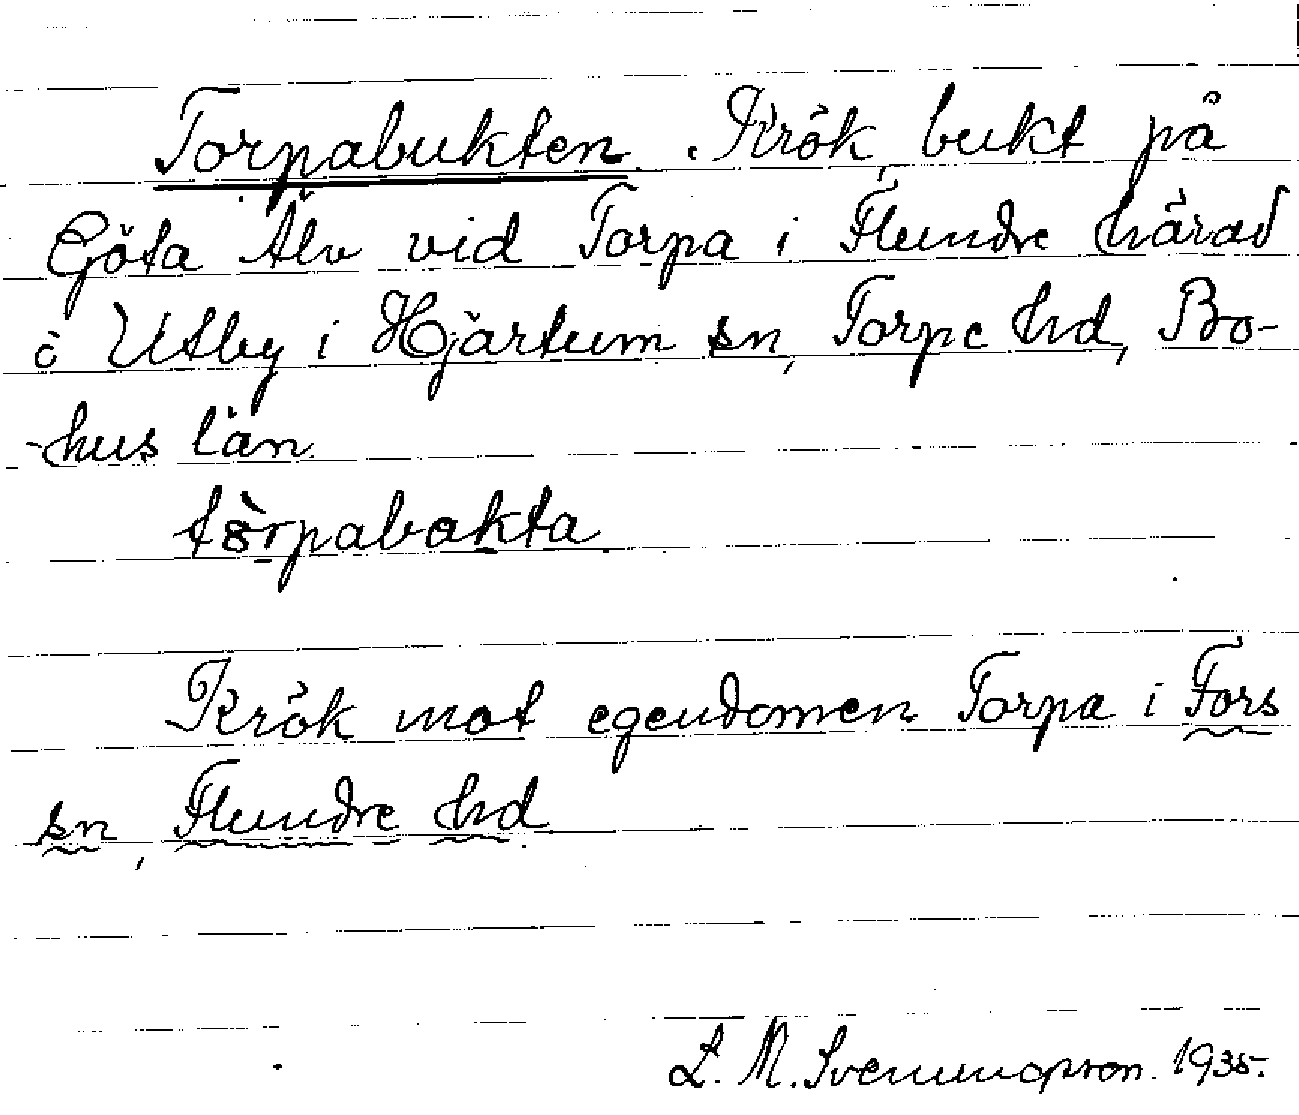 Torpabukten. Krök, bukt på
Göta Älv vid Torpa i Flundre härad
o Utby i Hjärtum sn, Torpe hd, Bo-
-hus län.
tòrpabokta
Krök mot egendomen Torpa i Fors
sn, Flundre hd.
L. M. Svenungsson. 1935.